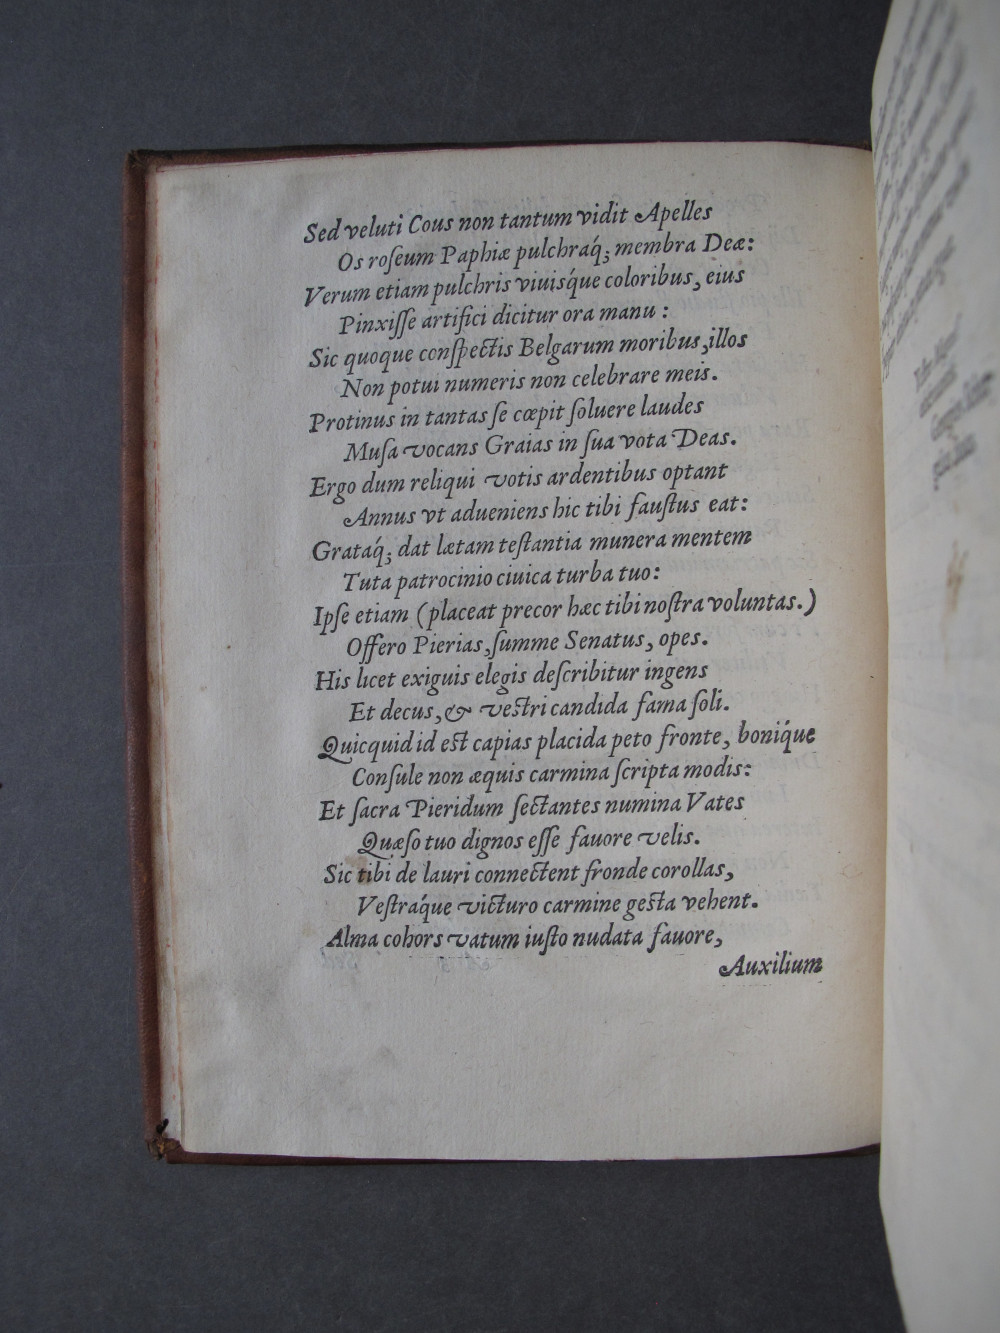 Sed veluti Cous non tantum vidit Apelles
Os roſeum Paphiæ pulchraq́; membra Deæ:
Verum etiam pulchris viuiśque coloribus, eius
Pinxiſſe artifici dicitur ora manu :
Sic quoque conſpectis Belgarum moribus, illos
Non potui numeris non celebrare meis.
Protinus in tantas ſe cœpit ſoluere laudes
Muſa vocans Graias in ſua vota Deas.
Ergo dum reliqui votis ardentibus optant
Annus vt adueniens hic tibi fauſtus eat:
Grataq́; dat lætam teſtantia munera mentem
Tuta patrocinio ciuica turba tuo:
Ipſe etiam (placeat precor hæc tibi noſtra voluntas.)
Offero Pierias, ſumme Senatus, opes.
His licet exiguis elegis deſcribitur ingens
Et decus, & veſtri candida fama ſoli.
Quicquid id eſt capias placida peto fronte, boniq́ue
Conſule non æquis carmina ſcripta modis:
Et ſacra Pieridum ſectantes numina Vates
Quæſo tuo dignos eſſe fauore velis.
Sic tibi de lauri connectent fronde corollas,
Veſtraq́ue victuro carmine geſta vehent.
Alma cohors vatum iuſto nudata fauore,
Auxilium